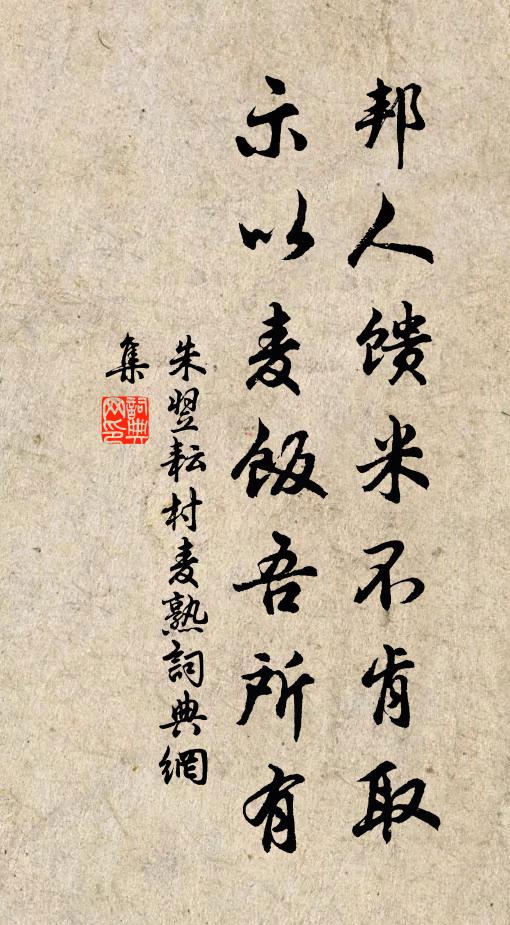 邦人馈米不肯取
示以麦飯吾所有
朱翌耘村麦熟詞典網
集
詞典網印